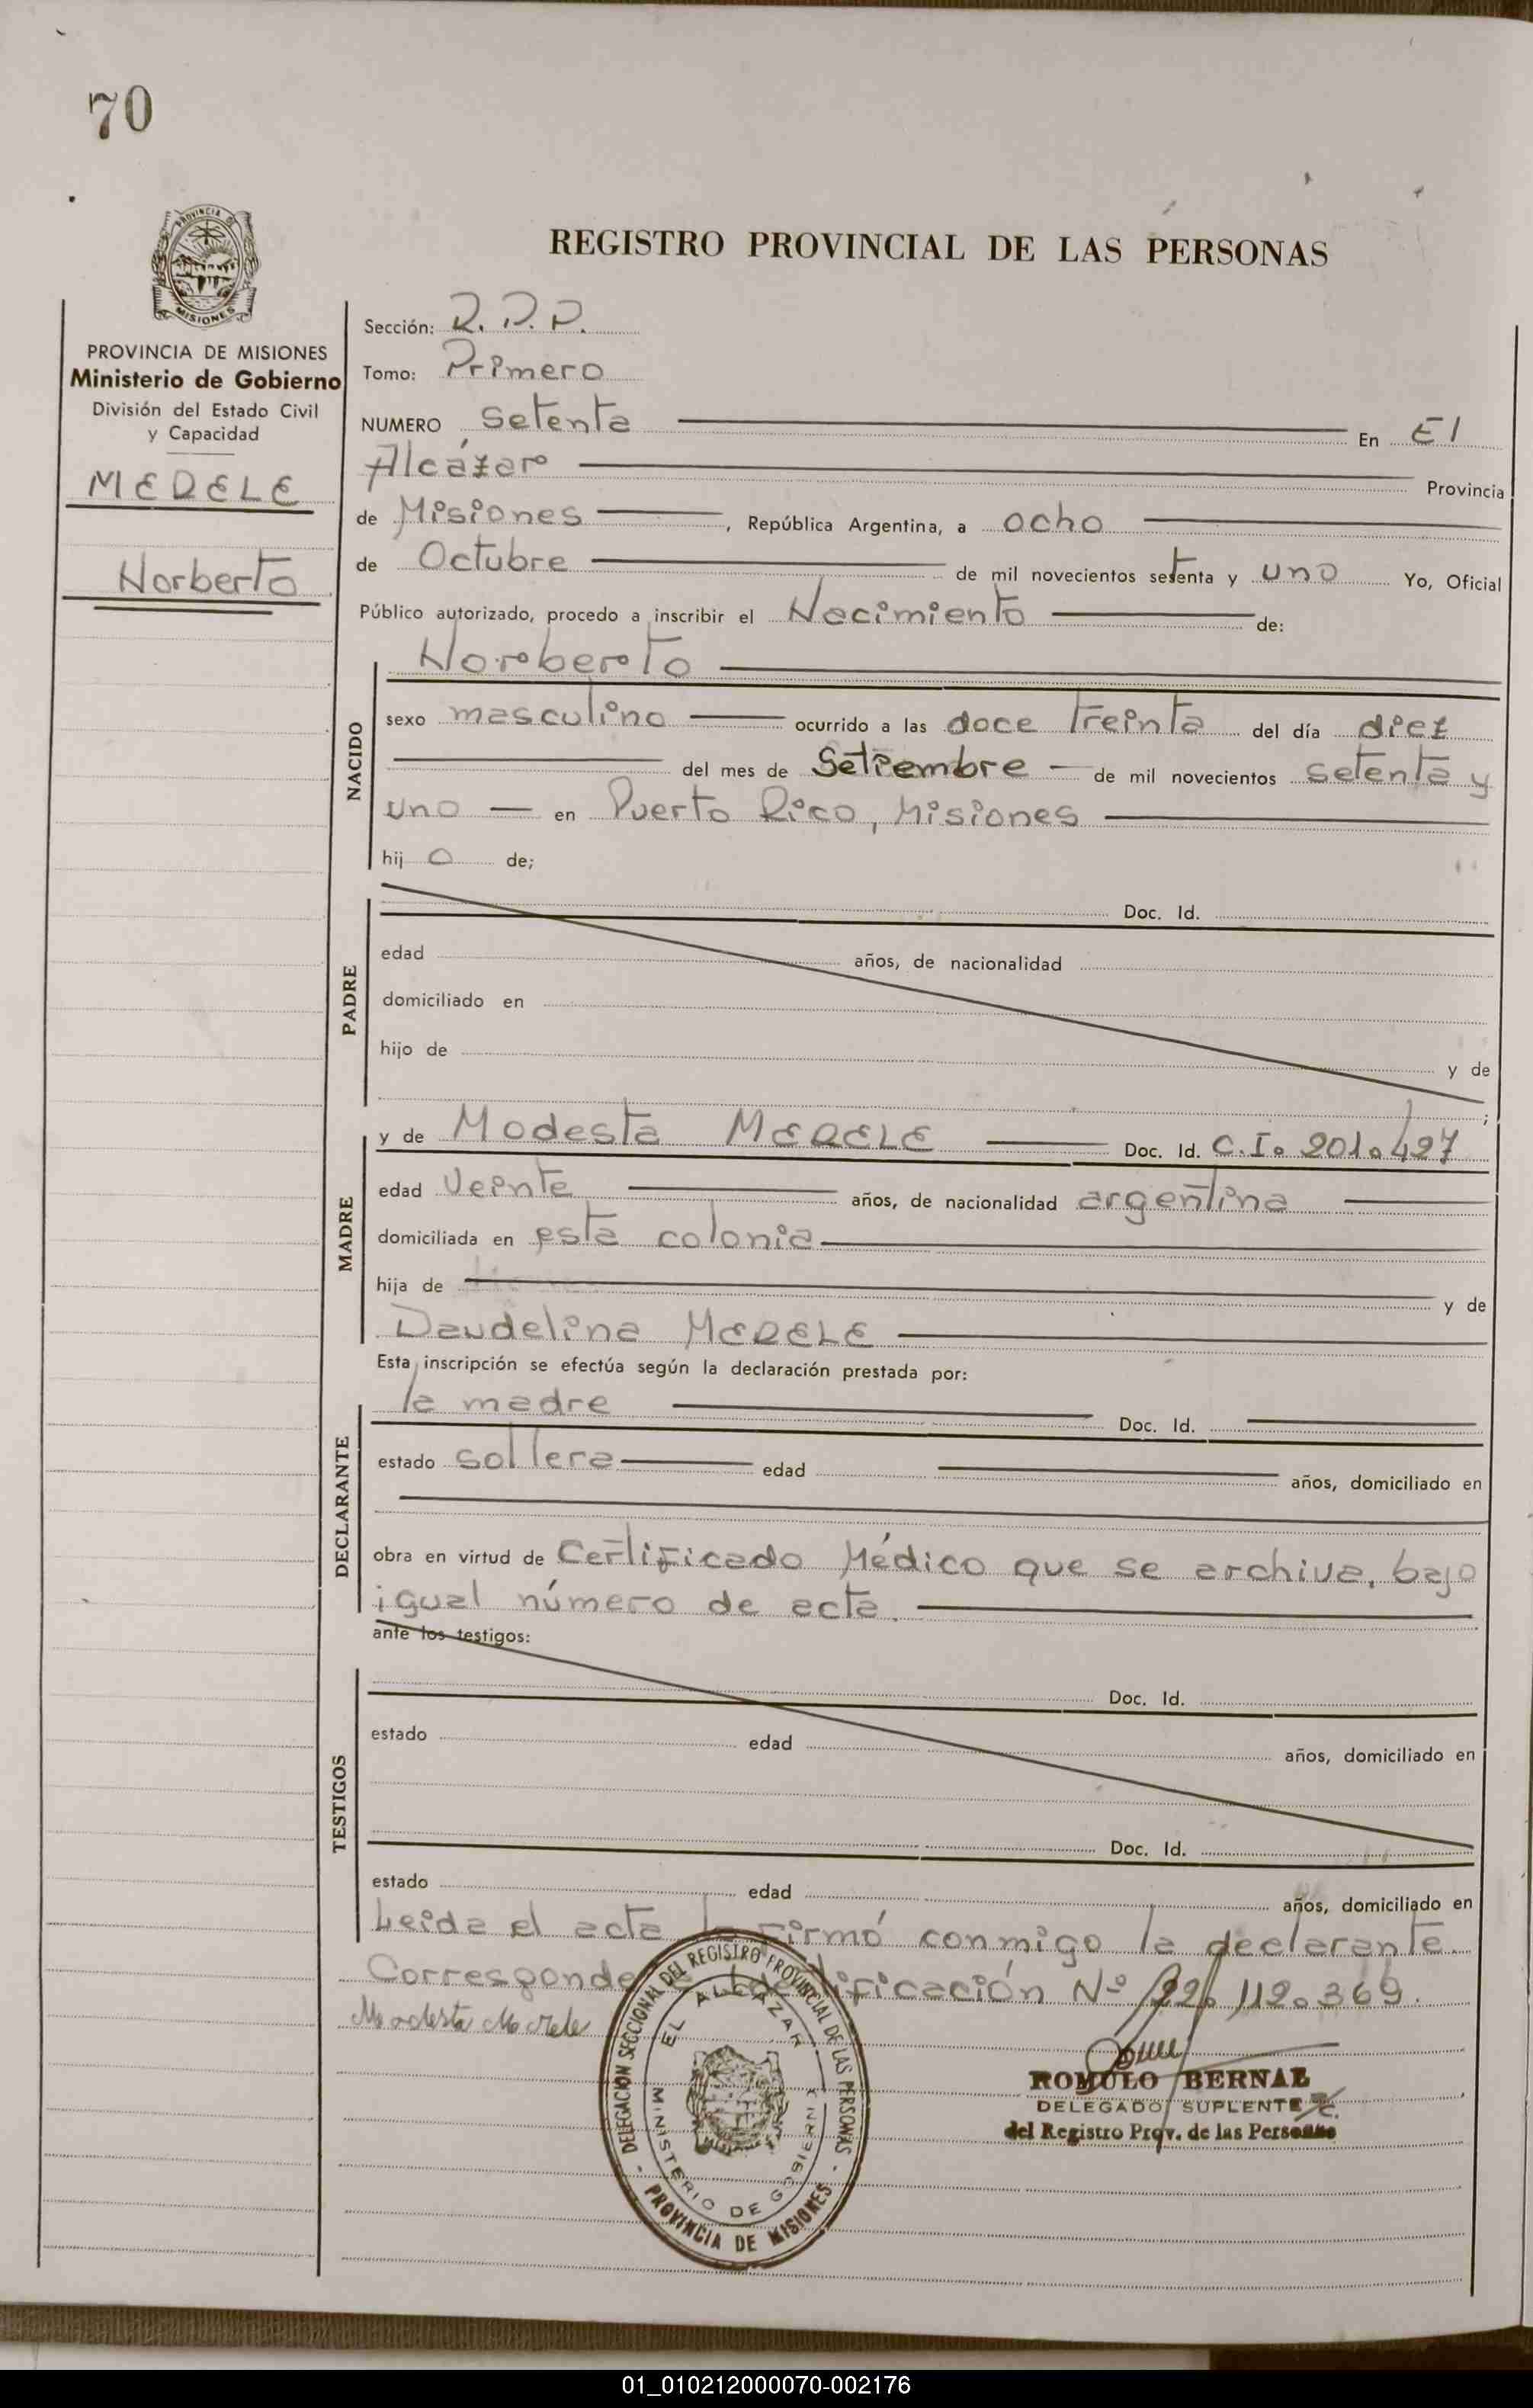 70
PROVINCIA DE
MISIONES
REGISTRO PROVINCIAL DE LAS PERSONAS
PROVINCIA DE MISIONES
Ministerio de Gobierno
División del Estado Civil
y Capacidad
MERELE
Norberto
Sección: R. P. P.
Tomo: Primero
NUMERO setenta En El
Alcázar Provincia
de Misiones, República Argentina, a ocho
de Octubre de mil novecientos setenta y uno Yo, Oficial
Público autorizado, procedo a inscribir el Nacimiento de:
Norberto
NACIDO
sexo masculino ocurrido a las doce treinta del día diez
del mes de Setiembre de mil novecientos setenta y
uno en Puerto Rico, Misiones
hij o de;
PADRE
Doc. Id.
edad años, de nacionalidad
domiciliado en
hijo de y de
;
MADRE
y de Modesta MERELE Doc. Id. C.I. 201.427
edad Veinte años, de nacionalidad argentina
domiciliada en esta colonia
hija de y de
Daudelina MERELE
Esta inscripción se efectúa según la declaración prestada por:
DECLARANTE
la madre Doc. Id.
estado soltera edad años, domiciliado en
obra en virtud de Certificado Médico que se archiva, bajo
igual número de acta.
ante los testigos:
TESTIGOS
Doc. Id.
estado edad años, domiciliado en
Doc. Id.
estado edad años, domiciliado en
Leida el acta la firmó conmigo la declarante.
Corresponde Identificación Nº 22.112.369.
Modesta Merele
DELEGACIÓN SECCIONAL DEL REGISTRO PROVINCIAL DE LAS PERSONAS
EL ALCAZAR
MINISTERIO DE GOBIERNO
PROVINCIA DE MISIONES
ROMULO BERNAL
DELEGADO SUPLENTE
del Registro Prov. de las Personas
01_010212000070-002176